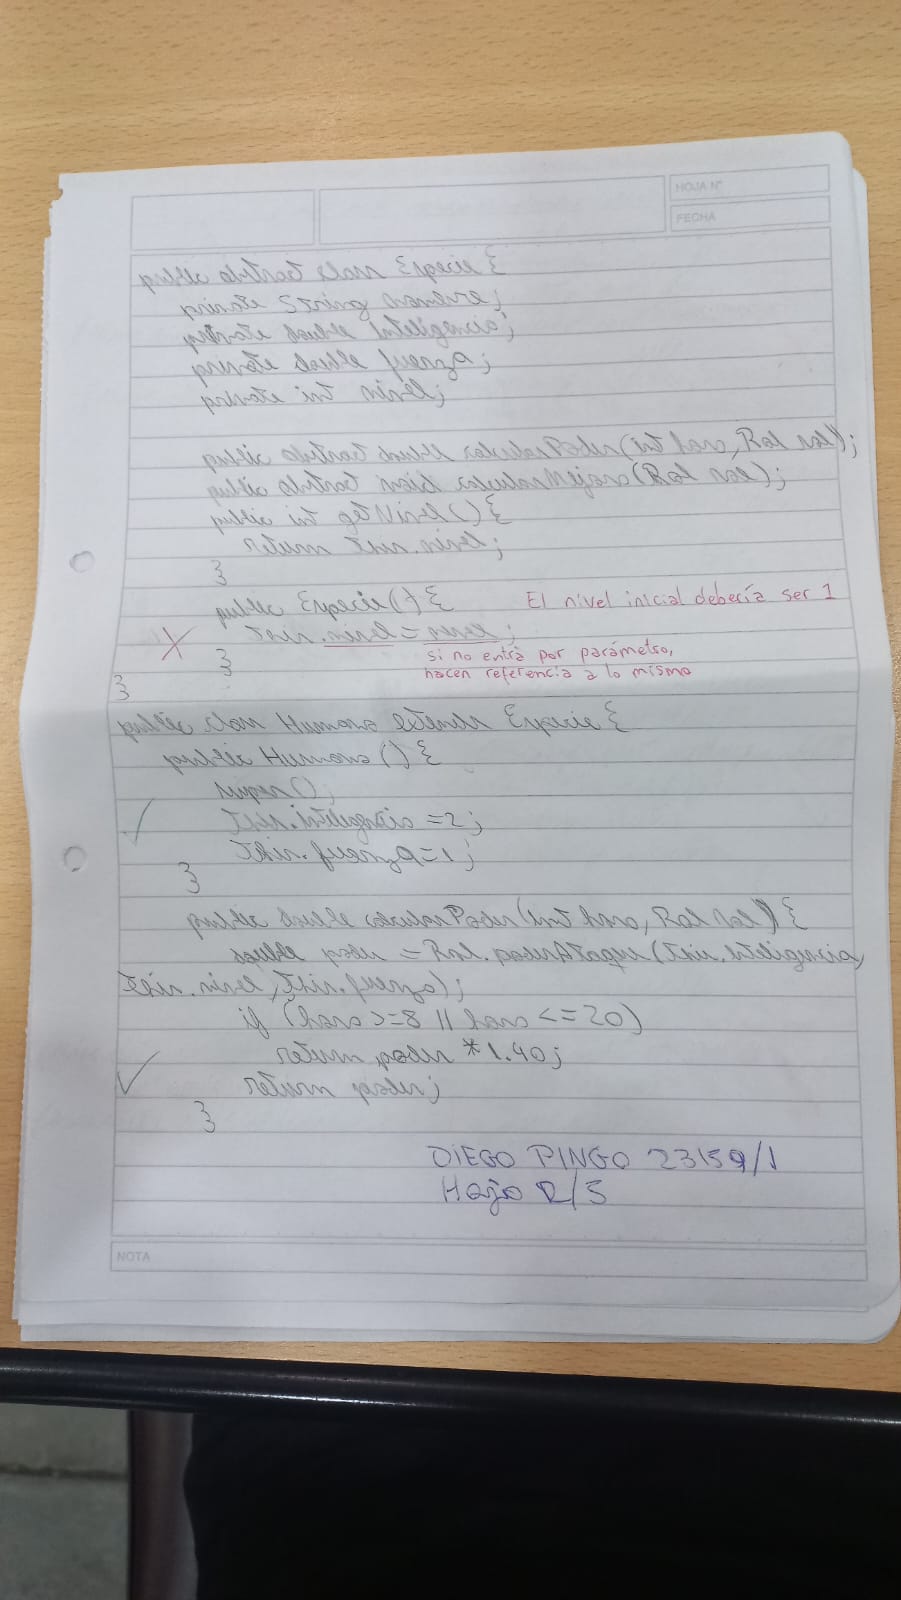 HOJA N°
FECHA
public abstract class Especie {
private String nombre;
private double Inteligencia;
private double fuerza;
private int nivel;
public abstract double calcularPoder(int hora, Rol rol);
public abstract void calcularMejora(Rol rol);
public int getNivel() {
return this.nivel;
}
public Especie() { El nivel inicial debería ser 1
this.nivel = nivel;
si no entra por parámetro,
} hacen referencia a lo mismo
}
public class Humano extends Especie {
public Humano() {
super();
this.inteligencia = 2;
this.fuerza = 1;
}
public double calcularPoder(int hora, Rol rol) {
double poder = Rol.poderAtaque(this.Inteligencia,
this.nivel, this.fuerza);
if (hora >= 8 || hora <= 20)
return poder * 1.40;
return poder;
}
DIEGO PINGO 23159/1
Hoja 2/5
NOTA